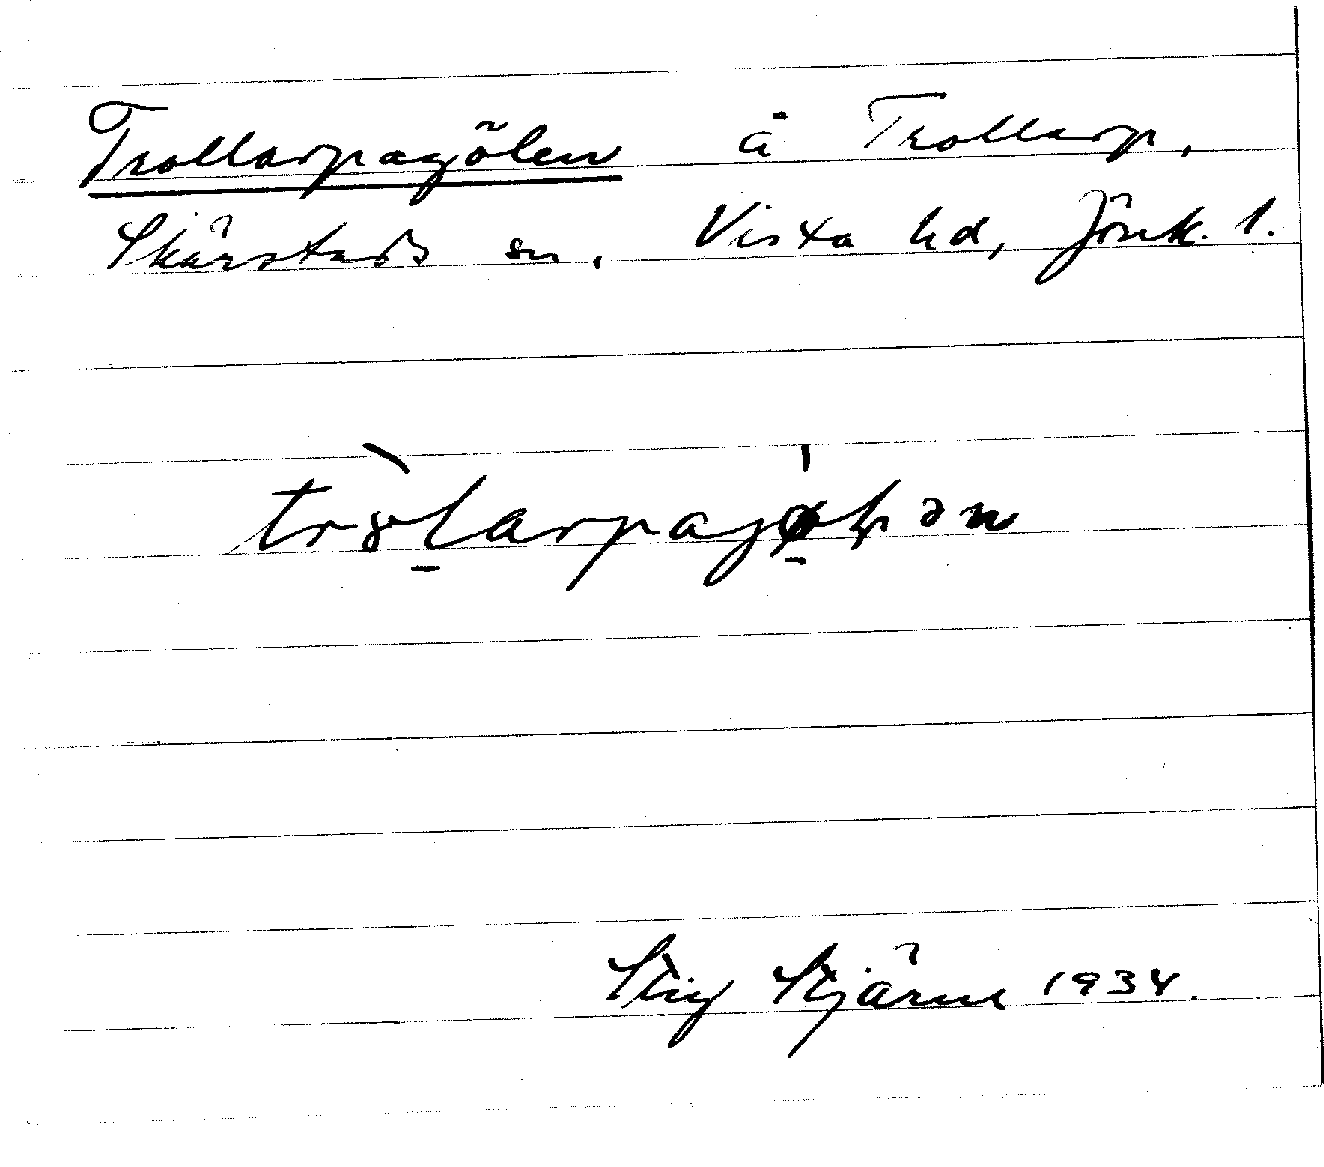 Trollarpagölen å Trollarp,
Skärstads sn, Vista hd, Jönk. l.
Stig Stjärne 1934.